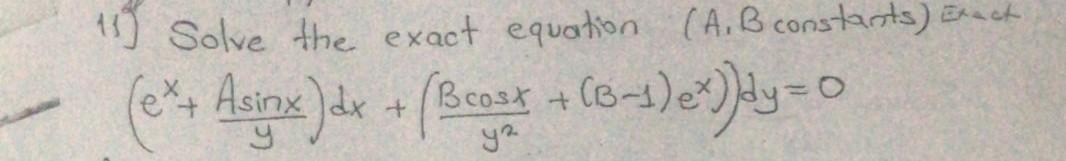 11) Solve the exact equation (A, B constants) Exact
(e^x + A sinx / y) dx + (B cosx / y² + (B-1) e^x)) dy = 0